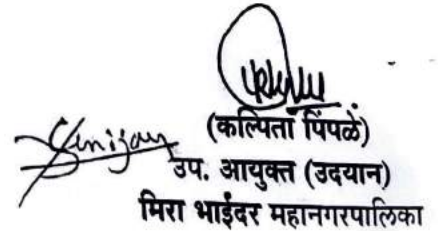 (कल्पिता पिंपळे)
उप. आयुक्त (उदयान)
मिरा भाईंदर महानगरपालिका